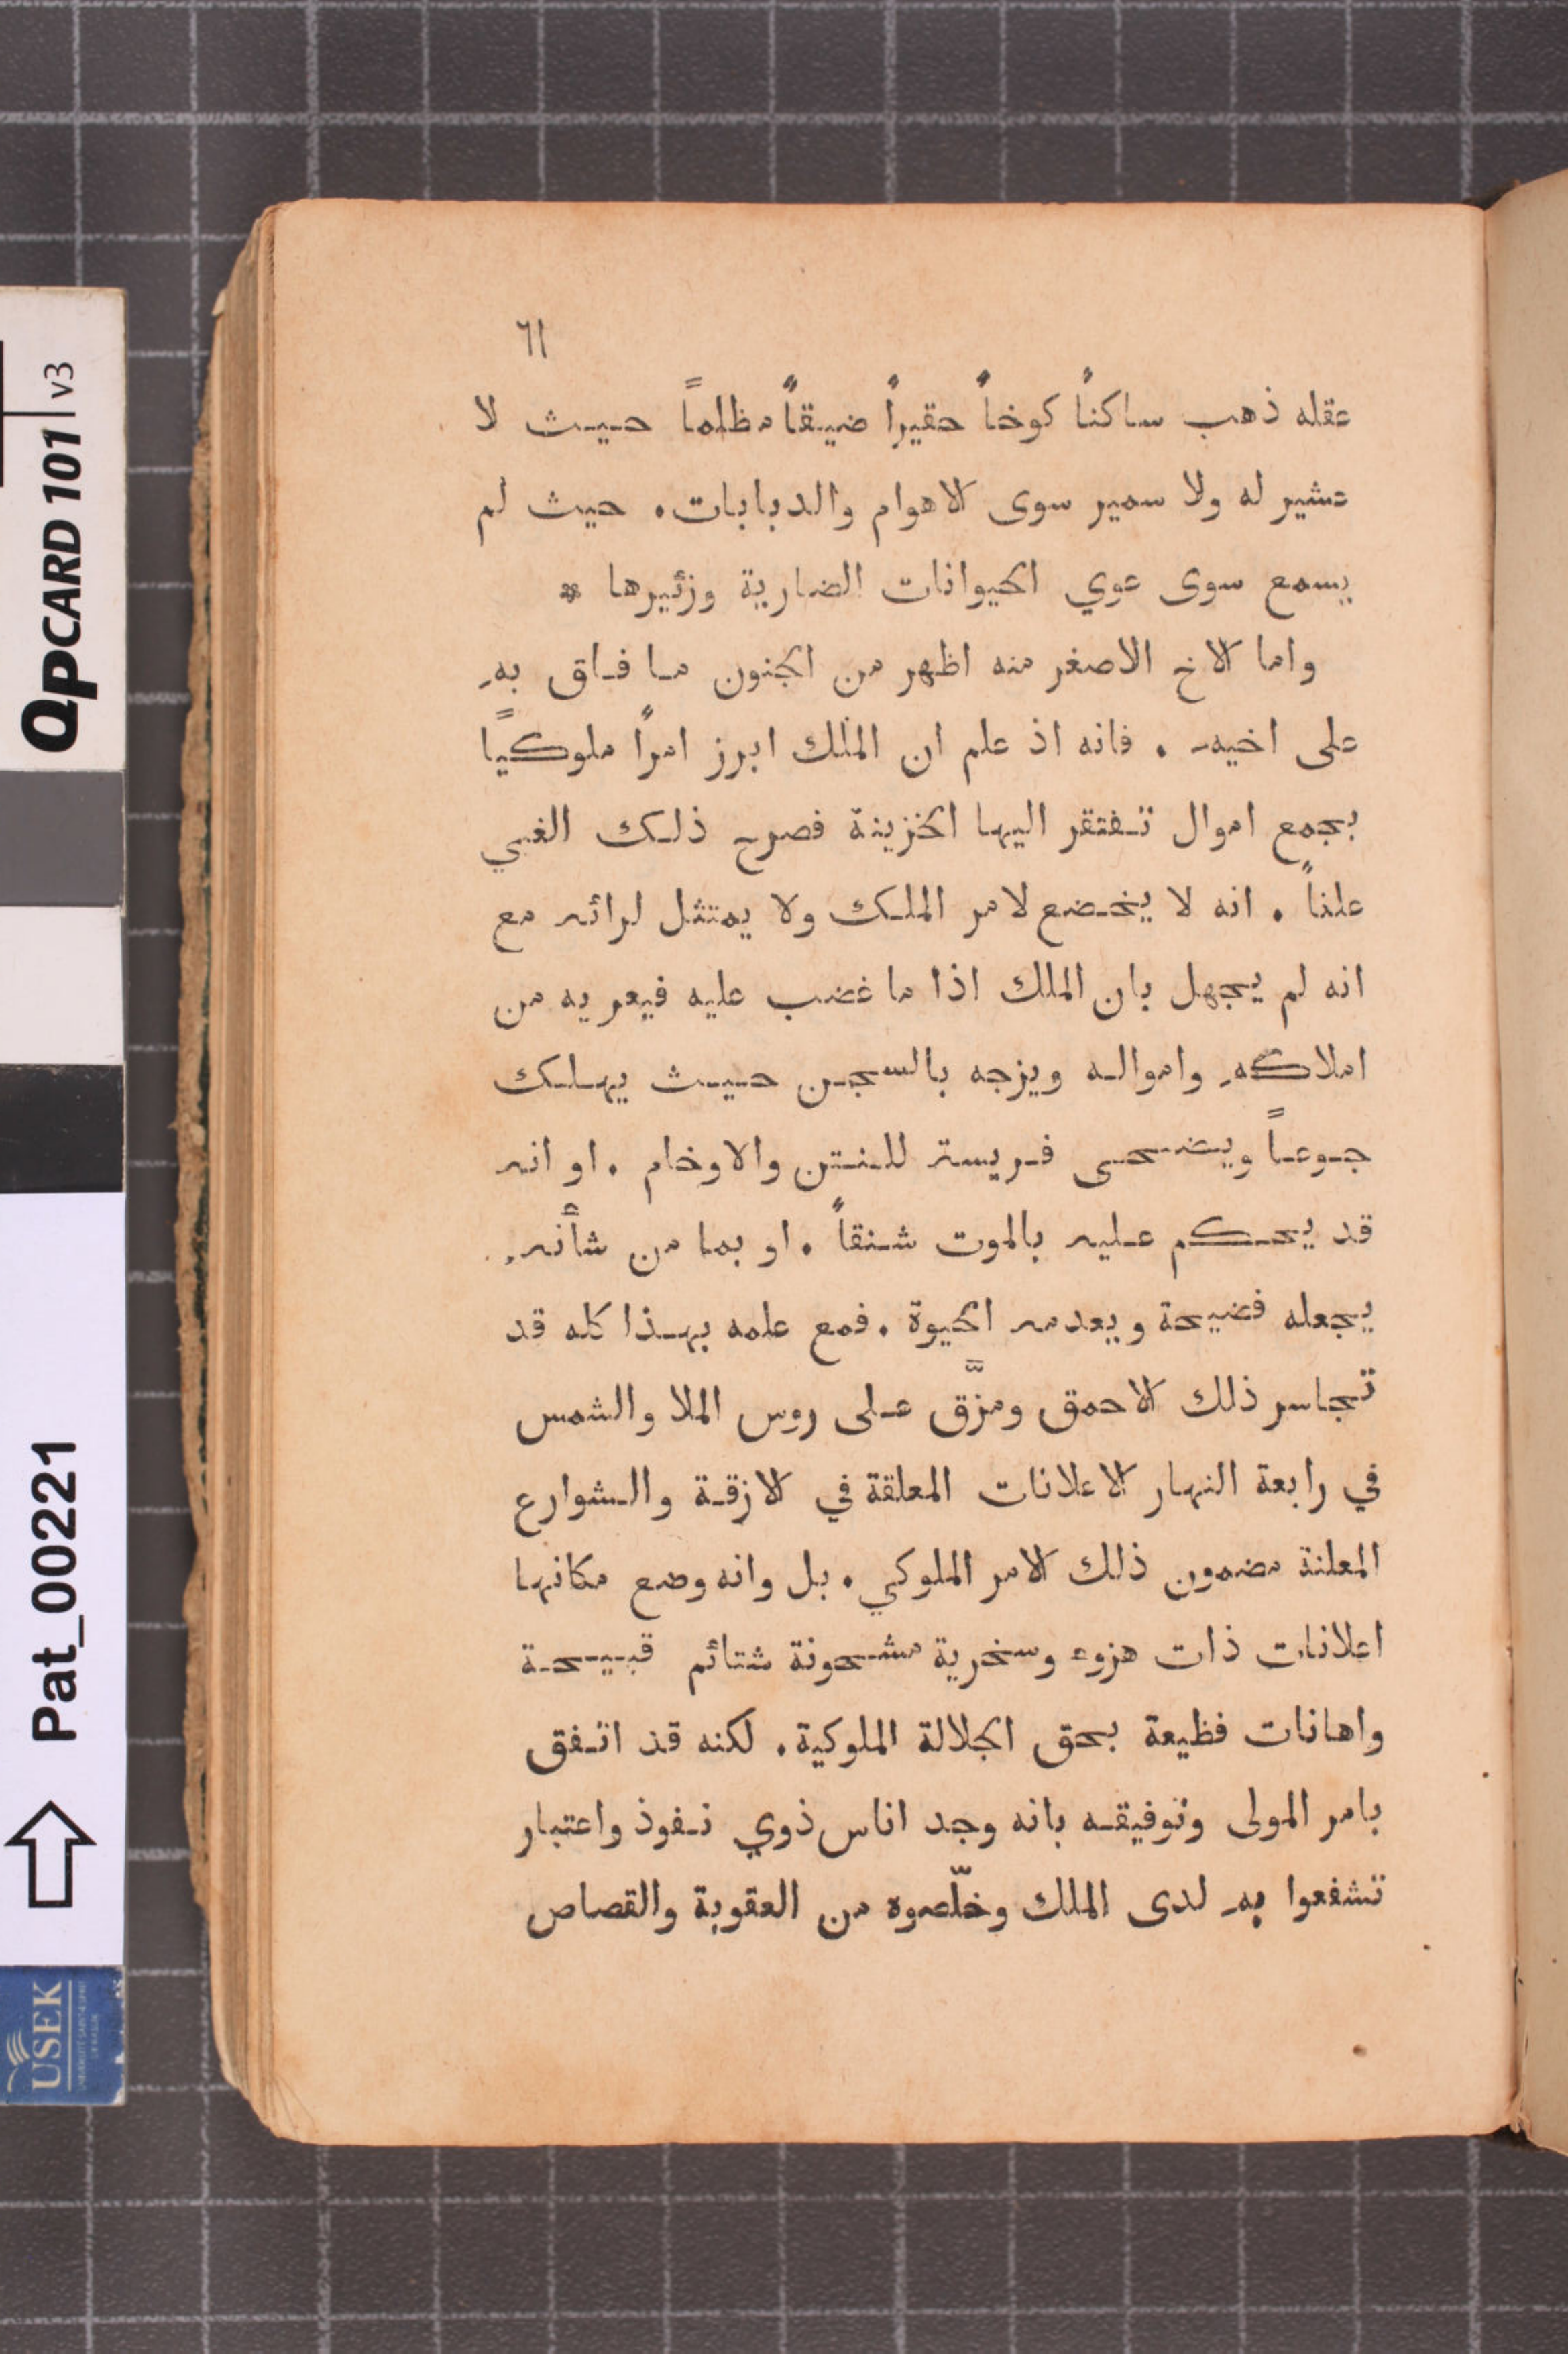 ٦١
عقله ذهب ساكناً كوخاً حقيراً ضيقاً مظلماً حيث لا
عشير له ولا سمير سوى الاهوام والدبابات. حيث لم
يسمع سوى عوي الحيوانات الضارية وزئيرها *
واما الاخ الاصغر منه اظهر من الجنون ما فاق به
على اخيه. فانه اذ علم ان الملك ابرز امراً ملوكيًا
بجمع اموال تفتقر اليها الخزينة فصرح ذلك الغبي
علناً. انه لا يخضع لامر الملك ولا يمتثل لرائه مع
انه لم يجهل بان الملك اذا ما غضب عليه فيعريه من
املاكه وامواله ويزجه بالسجن حيث يهلك
جوعاً ويضحى فريسة للنتن والاوخام. او انه
قد يحكم عليه بالموت شنقاً. او بما من شأنه
يجعله فضيحة ويعدمه الحيوة. فمع علمه بهذا كله قد
تجاسر ذلك الاحمق ومزَّق على روس الملا والشمس
في رابعة النهار الاعلانات المعلقة في الازقة والشوارع
المعلنة مضمون ذلك الامر الملوكي. بل وانه وضع مكانها
اعلانات ذات هزوء وسخرية مشحونة شتائم قبيحة
واهانات فظيعة بحق الجلالة الملوكية. لكنه قد اتفق
بامر المولى وتوفيقه بانه وجد اناس ذوي نفوذ واعتبار
تشفعوا به لدى الملك وخلّصوه من العقوبة والقصاص
QPCARD 101 v3
Pat_00221
USEK